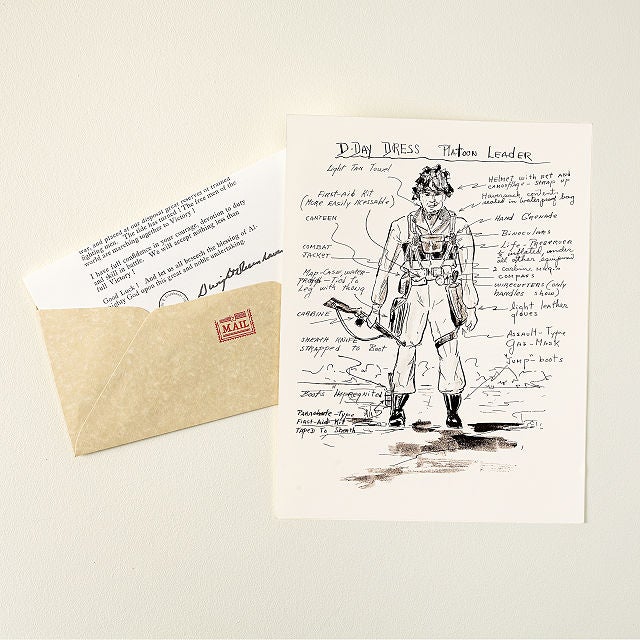 war, and placed at our disposal great reserves of trained
fighting men. The tide has turned! The free men of the
world are marching together to Victory!
I have full confidence in your courage, devotion to duty
and skill in battle. We will accept nothing less than
full Victory!
Good Luck! And let us all beseech the blessing of Al-
mighty God upon this great and noble undertaking.
Dwight D. Eisenhower
MAIL
D-DAY DRESS PLATOON LEADER
Light Tan Towel
First-Aid Kit
(More Easily Accessable)
CANTEEN
COMBAT
JACKET
Map-Case, water-
proof-Tied To
Leg with thong
CARBINE
SHEATH KNIFE
STRAPPED to Boot
Boots Impregnited
Parachute-Type
First-Aid Kit
TAPED To Sheath
HELMET with net and
camouflage - strap up
Haversack content
sealed in waterproof bag
Hand Grenade
Binoculars
Life Preserver
under
all other equipment
2 carbine mags
compass
WIRECUTTERS (only
handles show)
light leather
gloves
Assault-Type
Gas-Mask
"Jump" boots